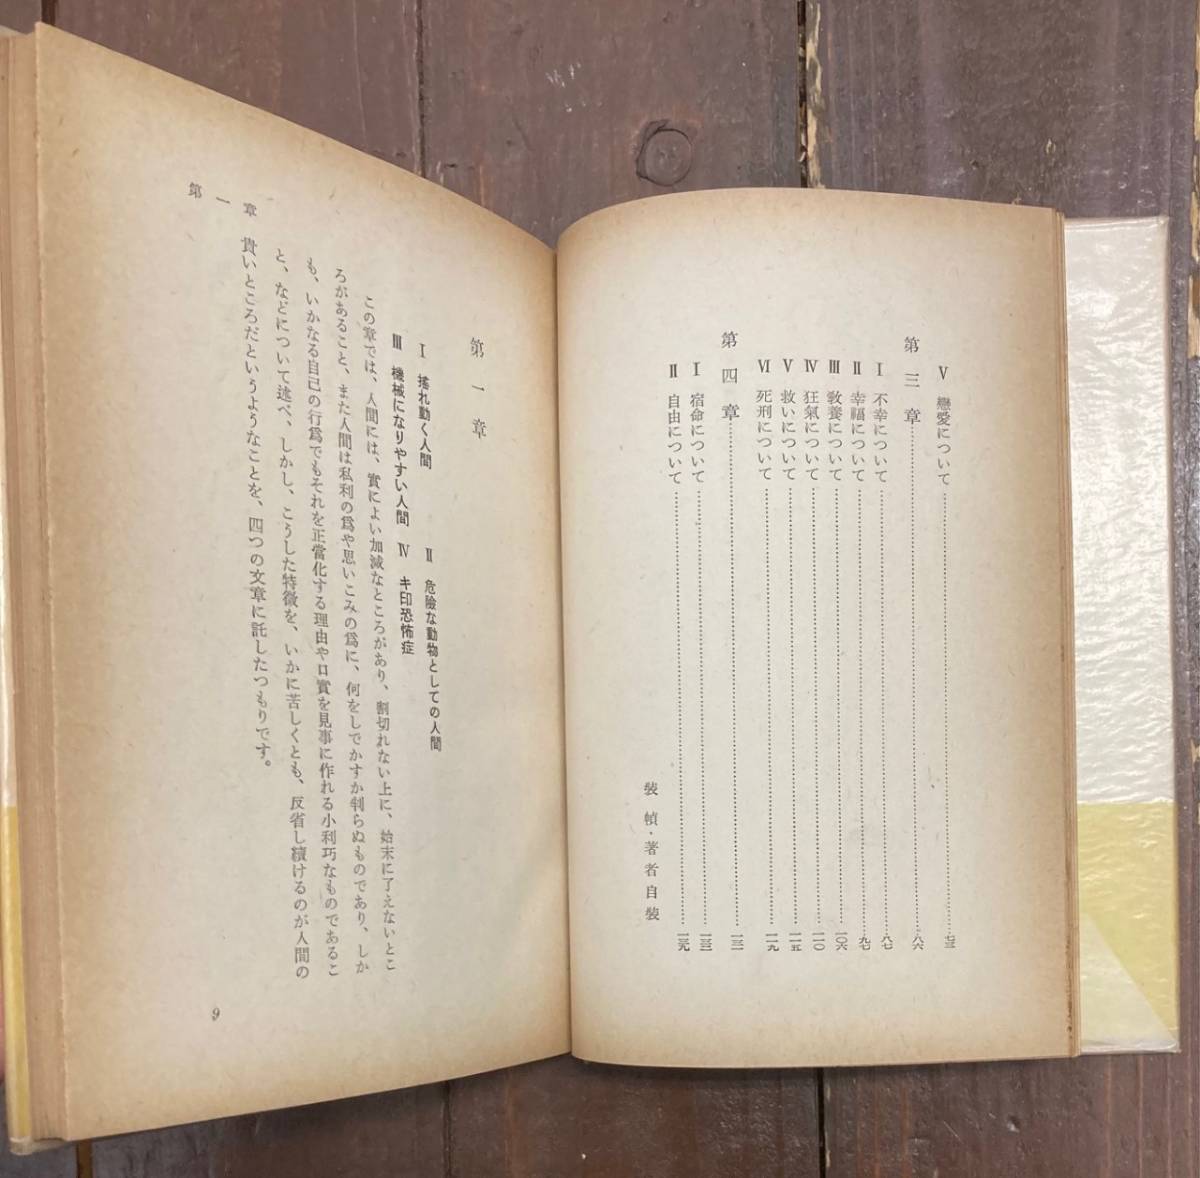 V 戀愛について……七三
第三章……八六
I 不幸について……八七
II 幸福について……九七
III 敎養について……一〇六
IV 狂氣について……一一〇
V 救いについて……一一五
VI 死刑について……一一九
第四章……一三一
I 宿命について……一三二
II 自由について……一三九
裝幀・著者自裝
第一章
I 搖れ動く人間 II 危險な動物としての人間
III 機械になりやすい人間 IV キ印恐怖症
この章では、人間には、實によい加減なところがあり、割切れない上に、始末に了えないとこ
ろがあること、また人間は私利の爲や思いこみの爲に、何をしでかすか判らぬものであり、しか
も、いかなる自己の行爲でもそれを正當化する理由や口實を見事に作れる小利巧なものであるこ
と、などについて述べ、しかし、こうした特徴を、いかに苦しくとも、反省し續けるのが人間の
貴いところだというようなことを、四つの文章に託したつもりです。
第一章
9